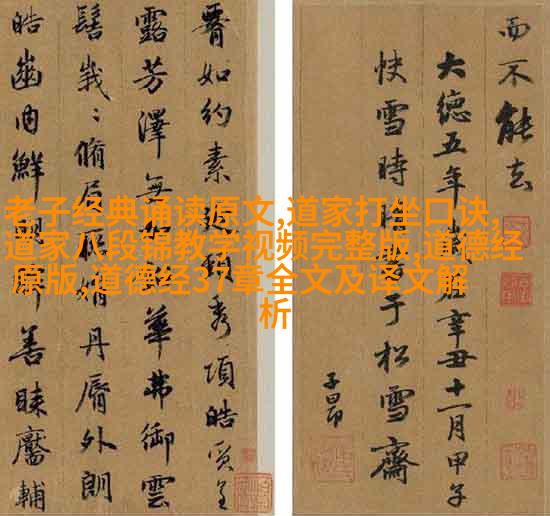 老子经典诵读原文,道家打坐口诀,
道家八段锦教学视频完整版,道德经
原版,道德经37章全文及译文解
析
而不能去
大德五年歲在辛丑十一月甲子
快雪時晴書于松雪齋
子昂
如約素延頸秀項皓質呈
露芳澤無華弗御雲
髻峩〻脩眉娟丹脣外朗
皓齒內鮮善睞靨輔